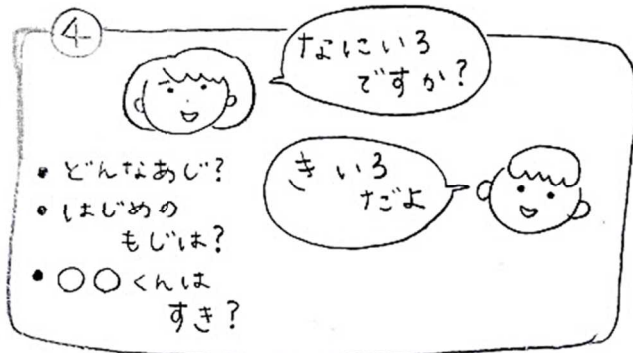 ④
なにいろ
ですか?
きいろ
だよ
• どんなあじ?
• はじめの
もじは?
• ○○くんは
すき?